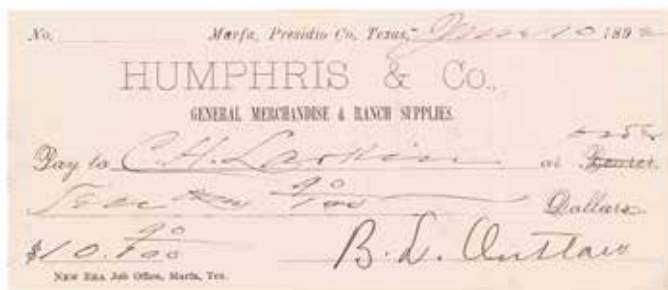 No. Marfa, Presidio Co, Texas, 10 189
HUMPHRIS & Co.,
GENERAL MERCHANDISE & RANCH SUPPLIES.
Pay to C.H. Larkin or Bearer
90/100 Dollars
$10.90/100 B.L. Outlaw
NEW ERA Job Office, Marfa, Tex.